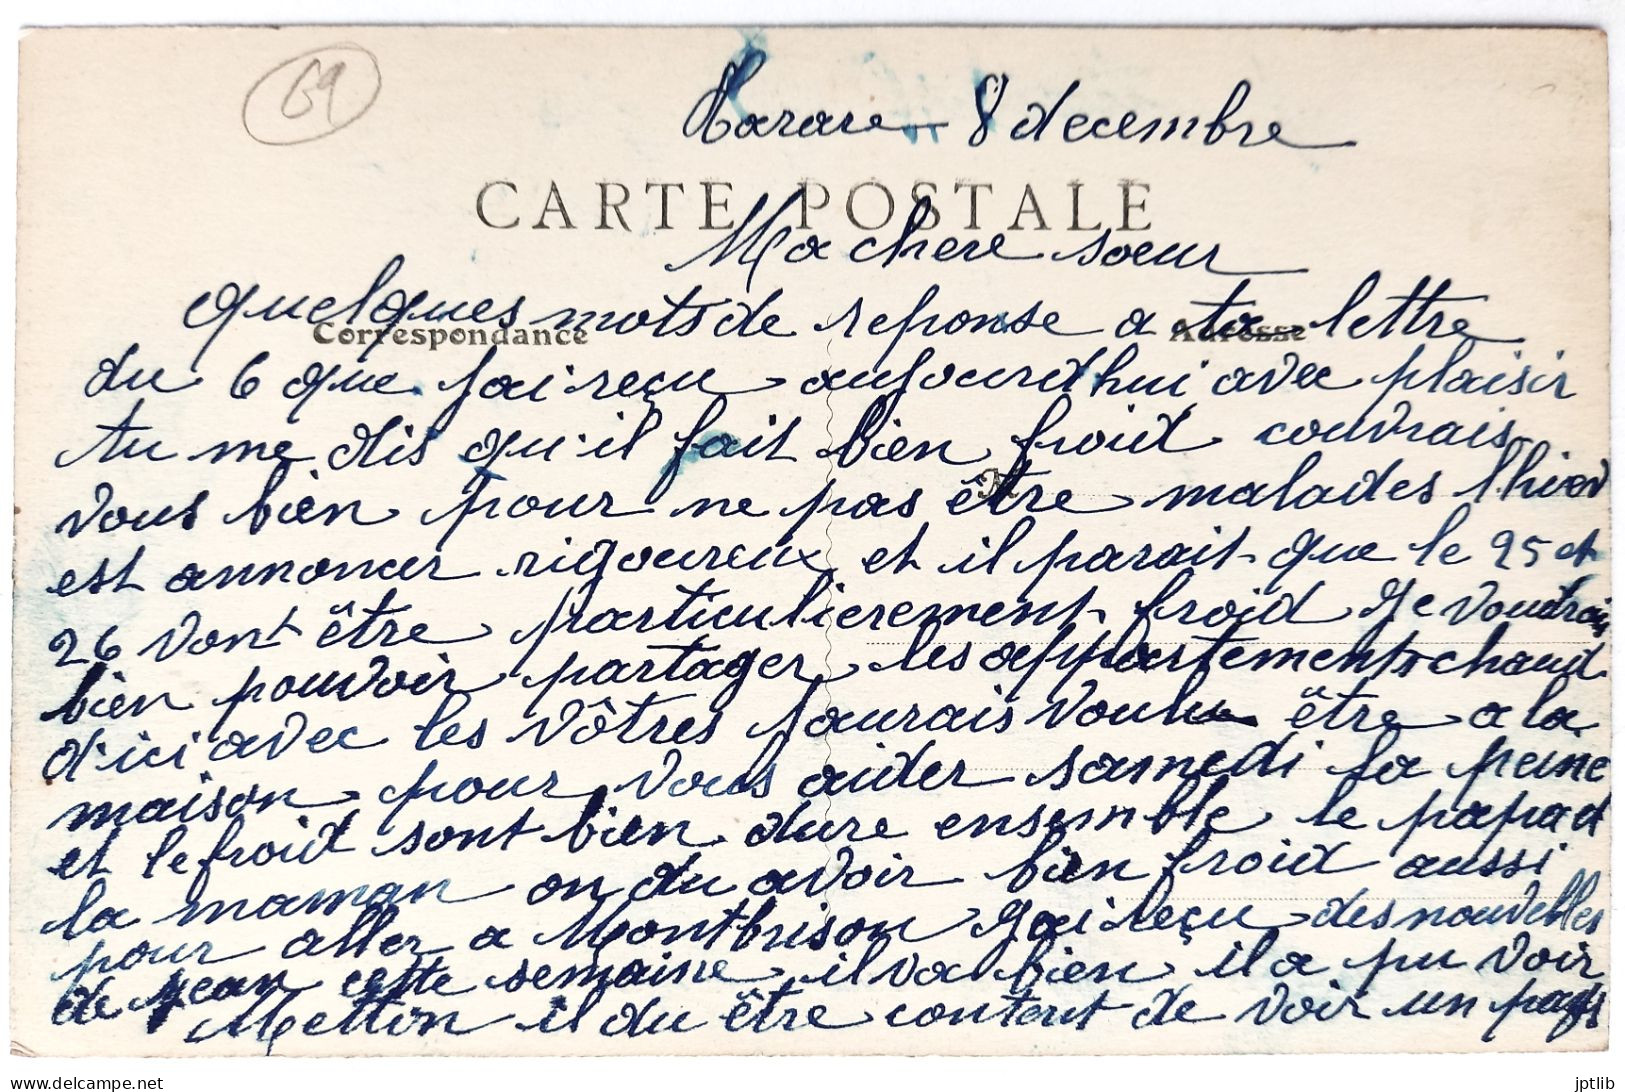 69
Tarare 8 decembre
CARTE POSTALE
Ma chere soeur
quelques mots de reponse a ta lettre
Correspondance Adresse
du 6 que jai reçu aujourd'hui avec plaisir
tu me dis qu'il fait bien froid couvrais
vous bien pour ne pas être malades lhiver
M
est annoncer rigoureux et il parait que le 25 et
26 vont être particulierement froid Je voudrais
bien pouvoir partager les appartements chaud
d'ici avec les vôtres jaurais voulu être a la
maison pour vous aider samedi la peine
et le froid sont bien dure ensemble le papa et
la maman on du avoir bien froid aussi
pour aller a Montbrison Jai reçu des nouvelles
de Jean cette semaine il va bien il a pu voir
Metton il du être content de voir un pays
jptlib